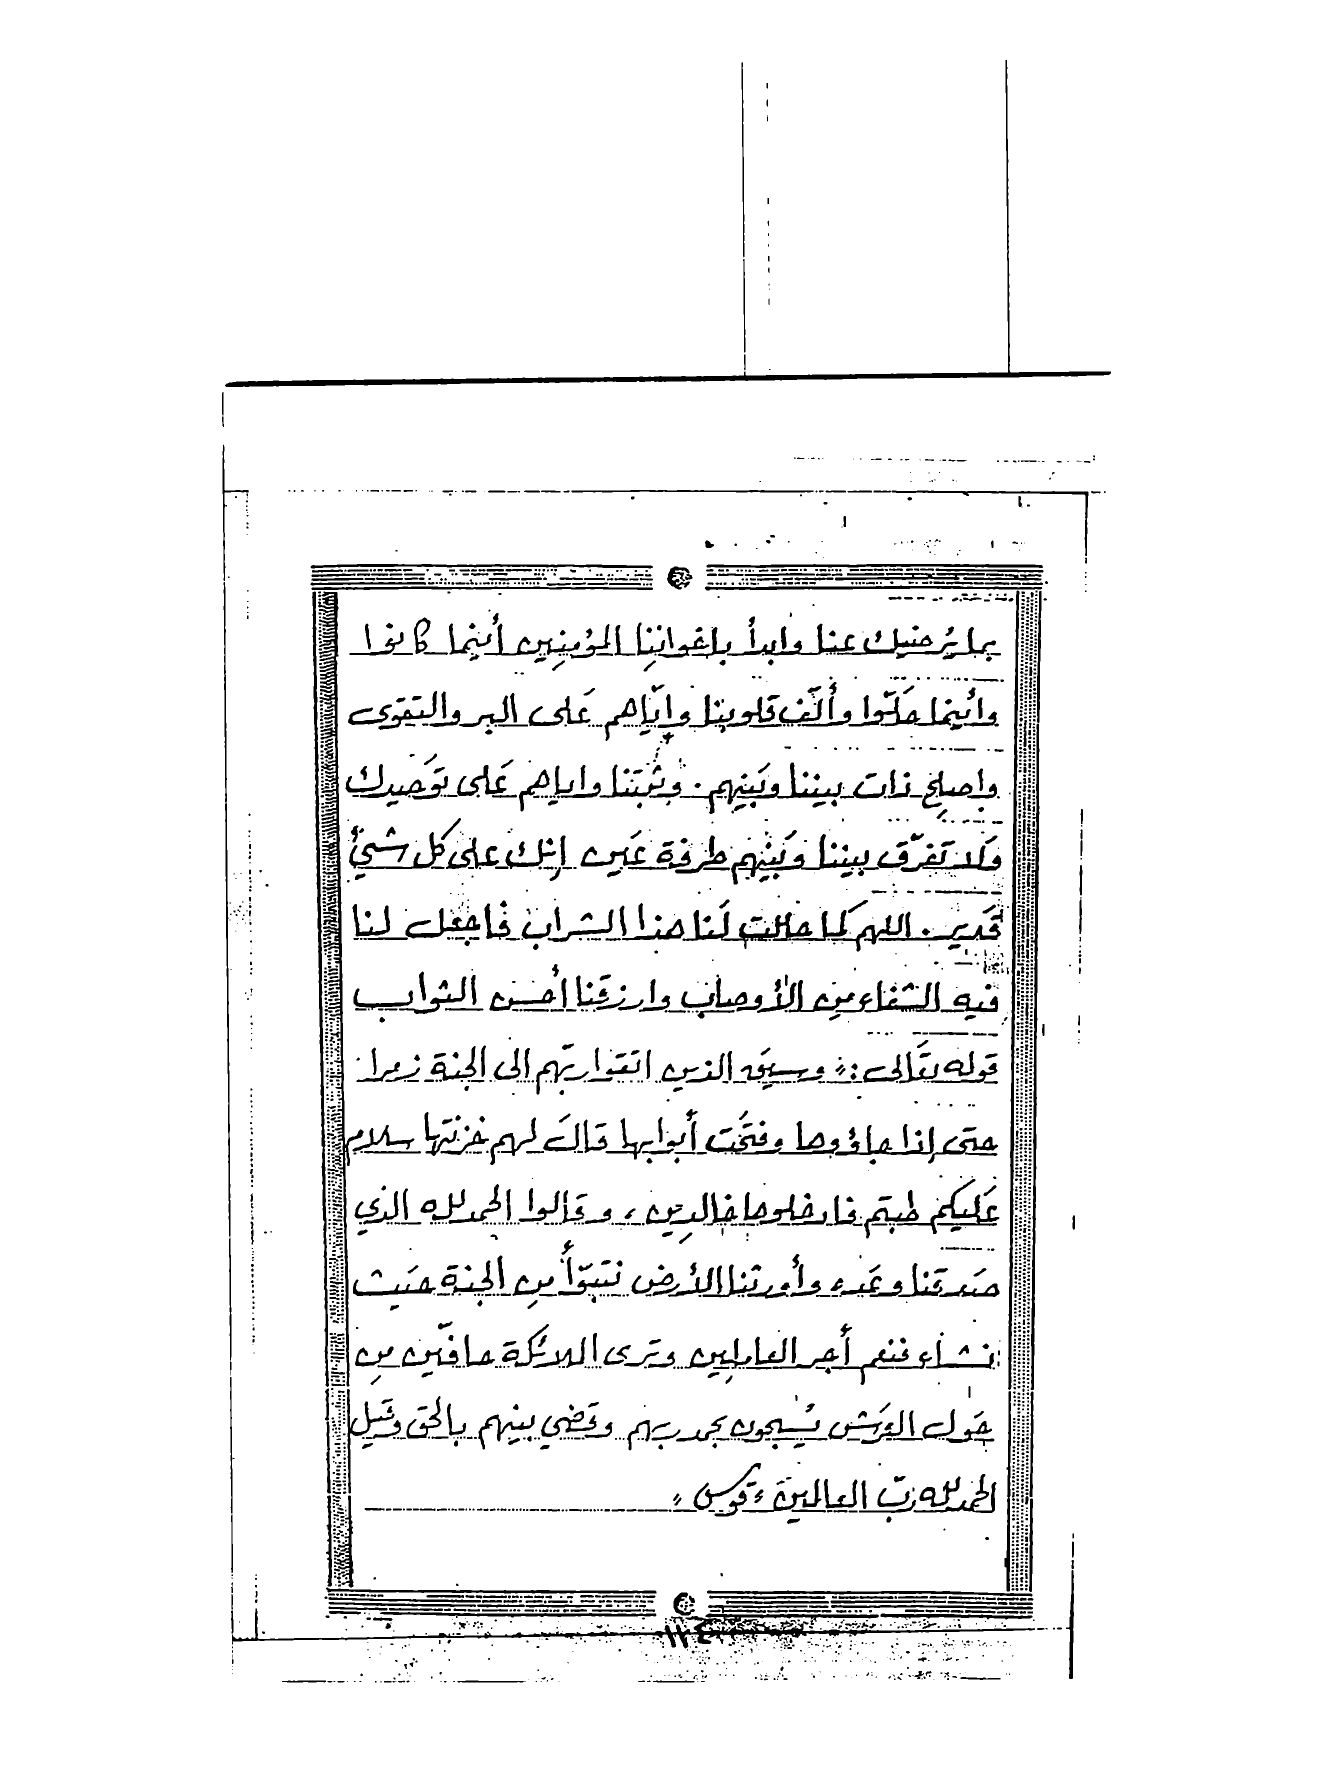 بما يُرضيك عنا وابدأ بإخواننِا المؤمنِين أينما كانوا
وأينما حَلّوا وألّف قلوبنا وايّاهم عَلى البر والتقوى
واصلِح ذات بيننا وبَينهم . وثبتنا واياهم عَلى توَحيدك
وَلا تَفرّق بيننا وبَينهم طرفة عَين إنك على كل شيئٍ
قَدير . اللهم كما حللت لَنا هذا الشراب فاجعل لنا
فيه الشفاء مِن الأوصاب وارزقنا أحسن الثواب
قوله تعَالى : " وسيقَ الذين اتقوا ربّهم الى الجنة زمرا
حتى إذا جاؤوها وفتحَت أبوابها قالَ لهم خزنتها سلام
عَليكم طبتم فادخلوها خالدِين ، وقالوا الحمد لله الذي
صَدقنا وعَده وأورثنا الأرض نتبوّأ مِن الجنة حَيث
نشاء فنعم أجر العامِلين وترى الملائكة حافّين مِن
حَول العَرش يُسبحون بحمد ربهم وقضي بينهم بالحق وقَيِل
الحمد لله ربّ العالمين " قوس "
١١٤